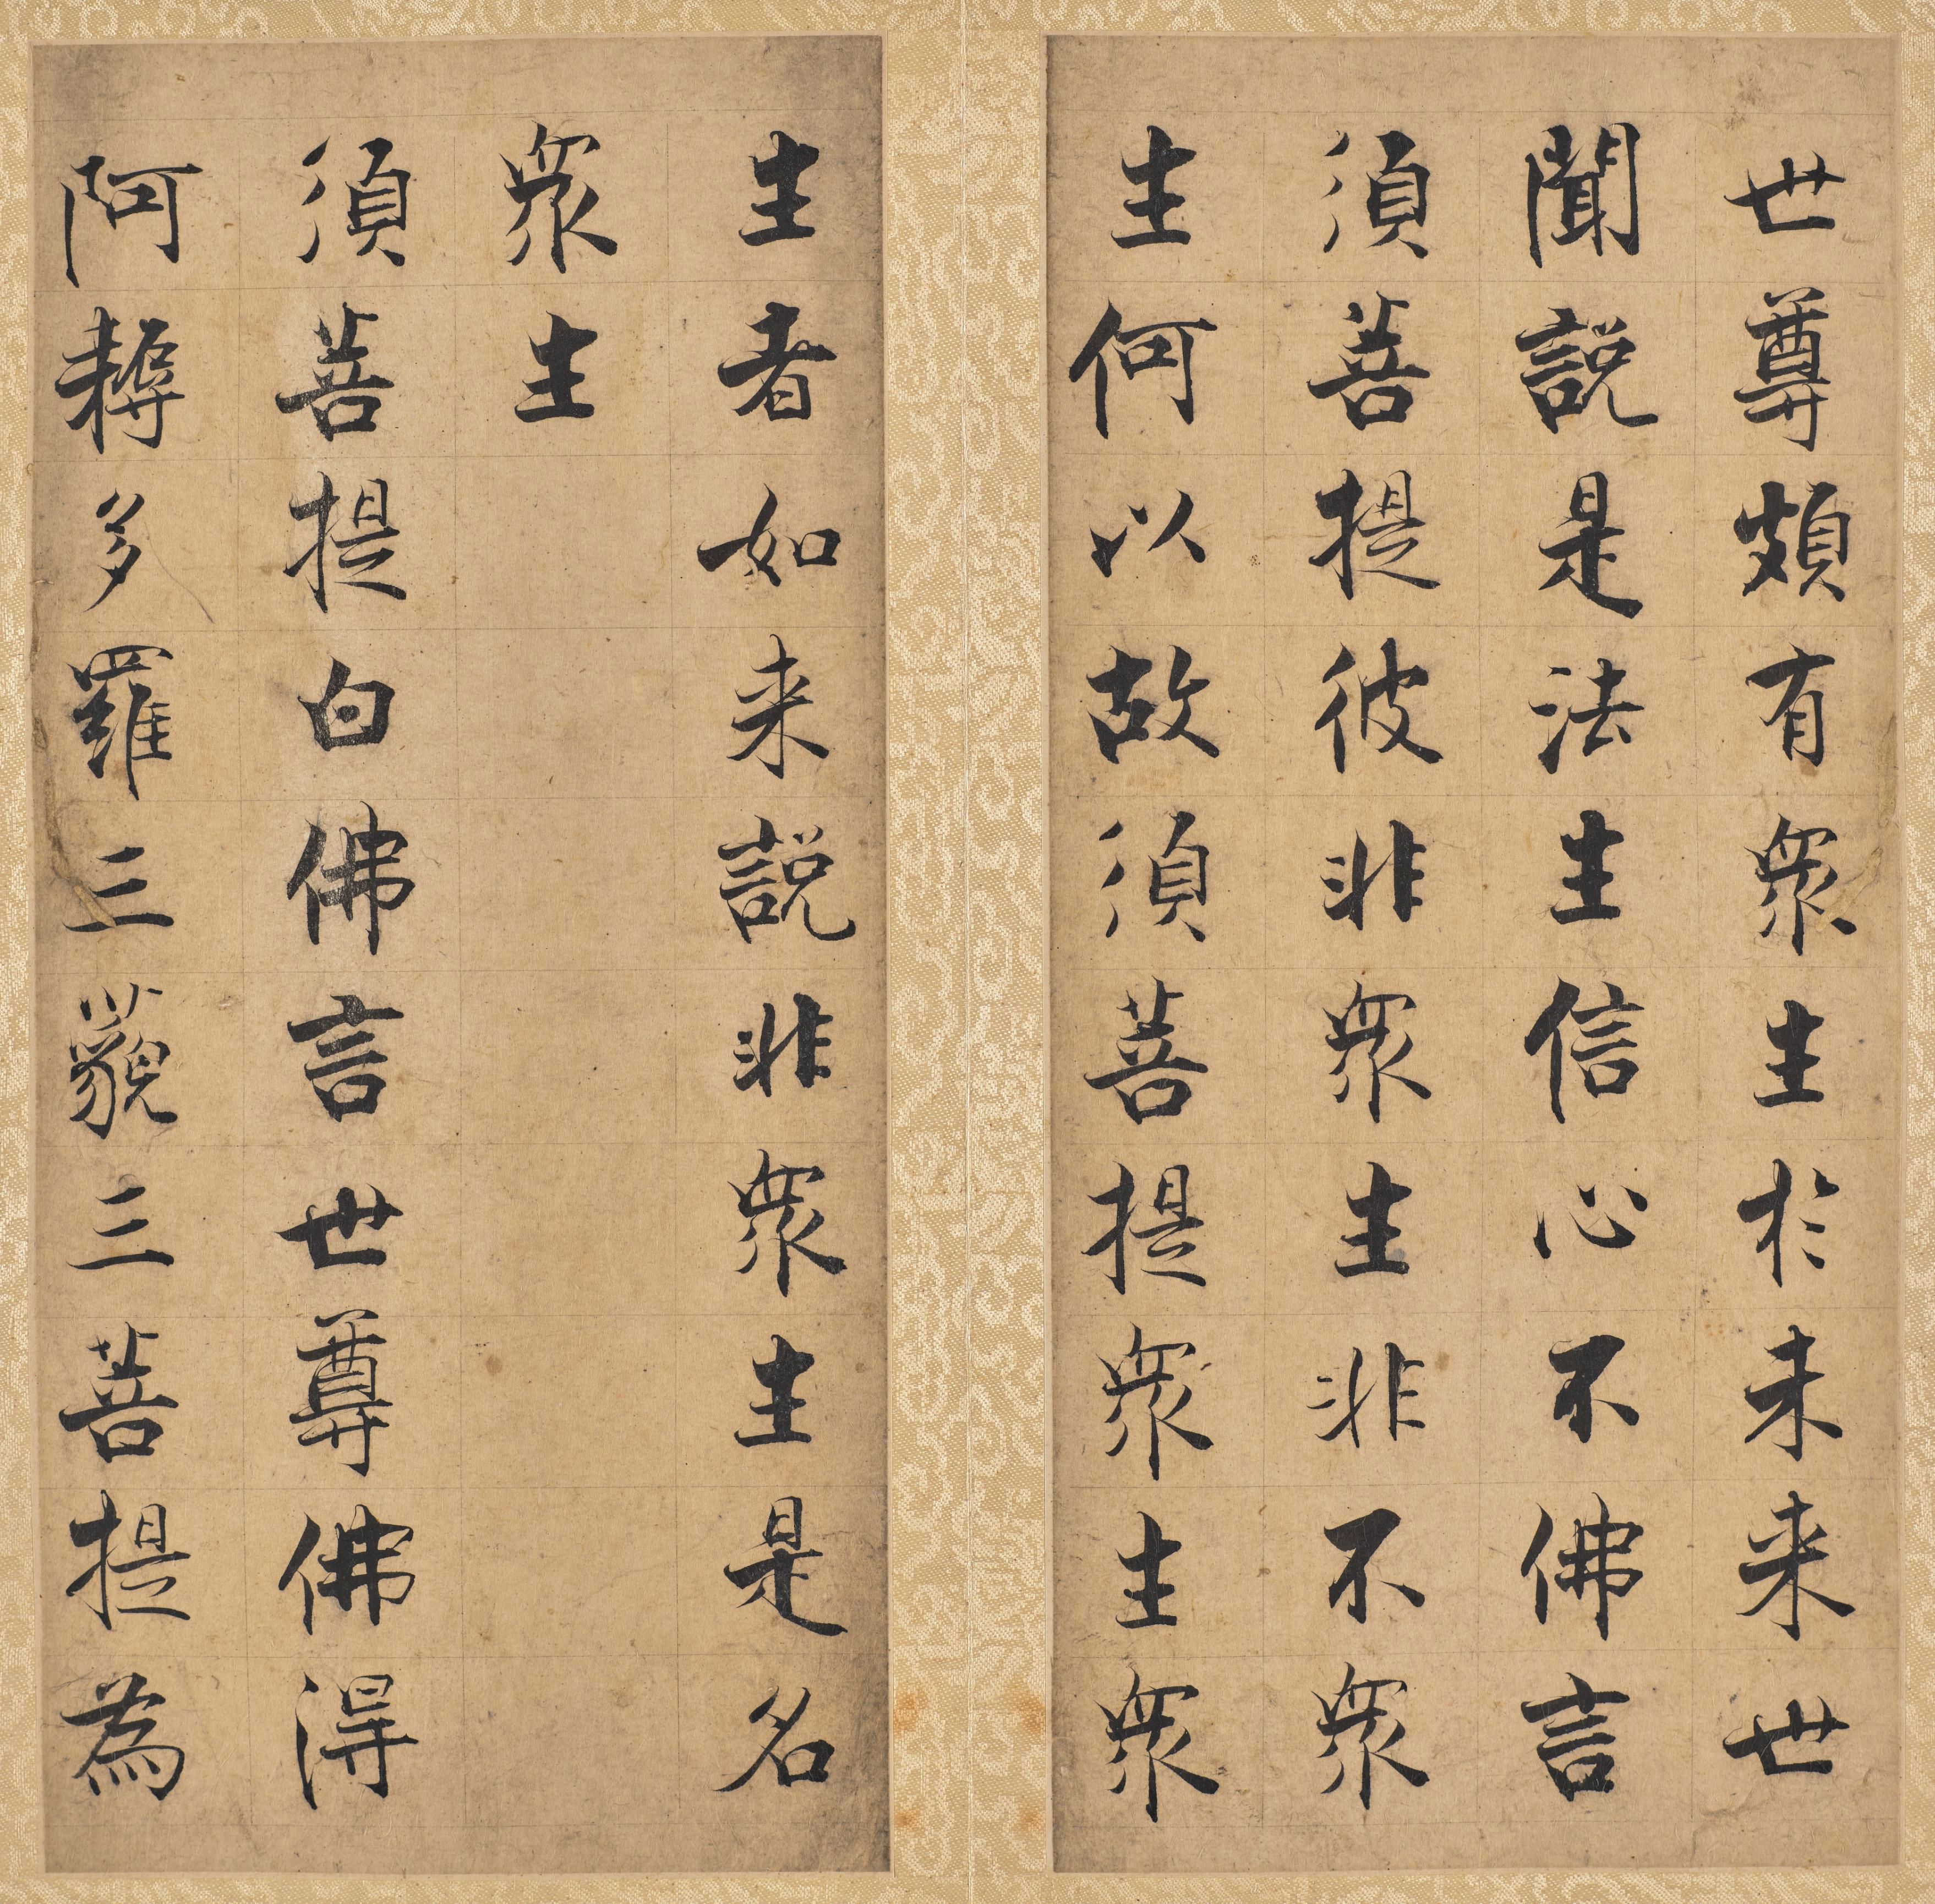 世尊頗有衆生於未来世
聞說是法生信心不佛言
須菩提彼非衆生非不衆
生何以故須菩提衆生衆
生者如来說非衆生是名
衆生
須菩提白佛言世尊佛得
阿耨多羅三藐三菩提為